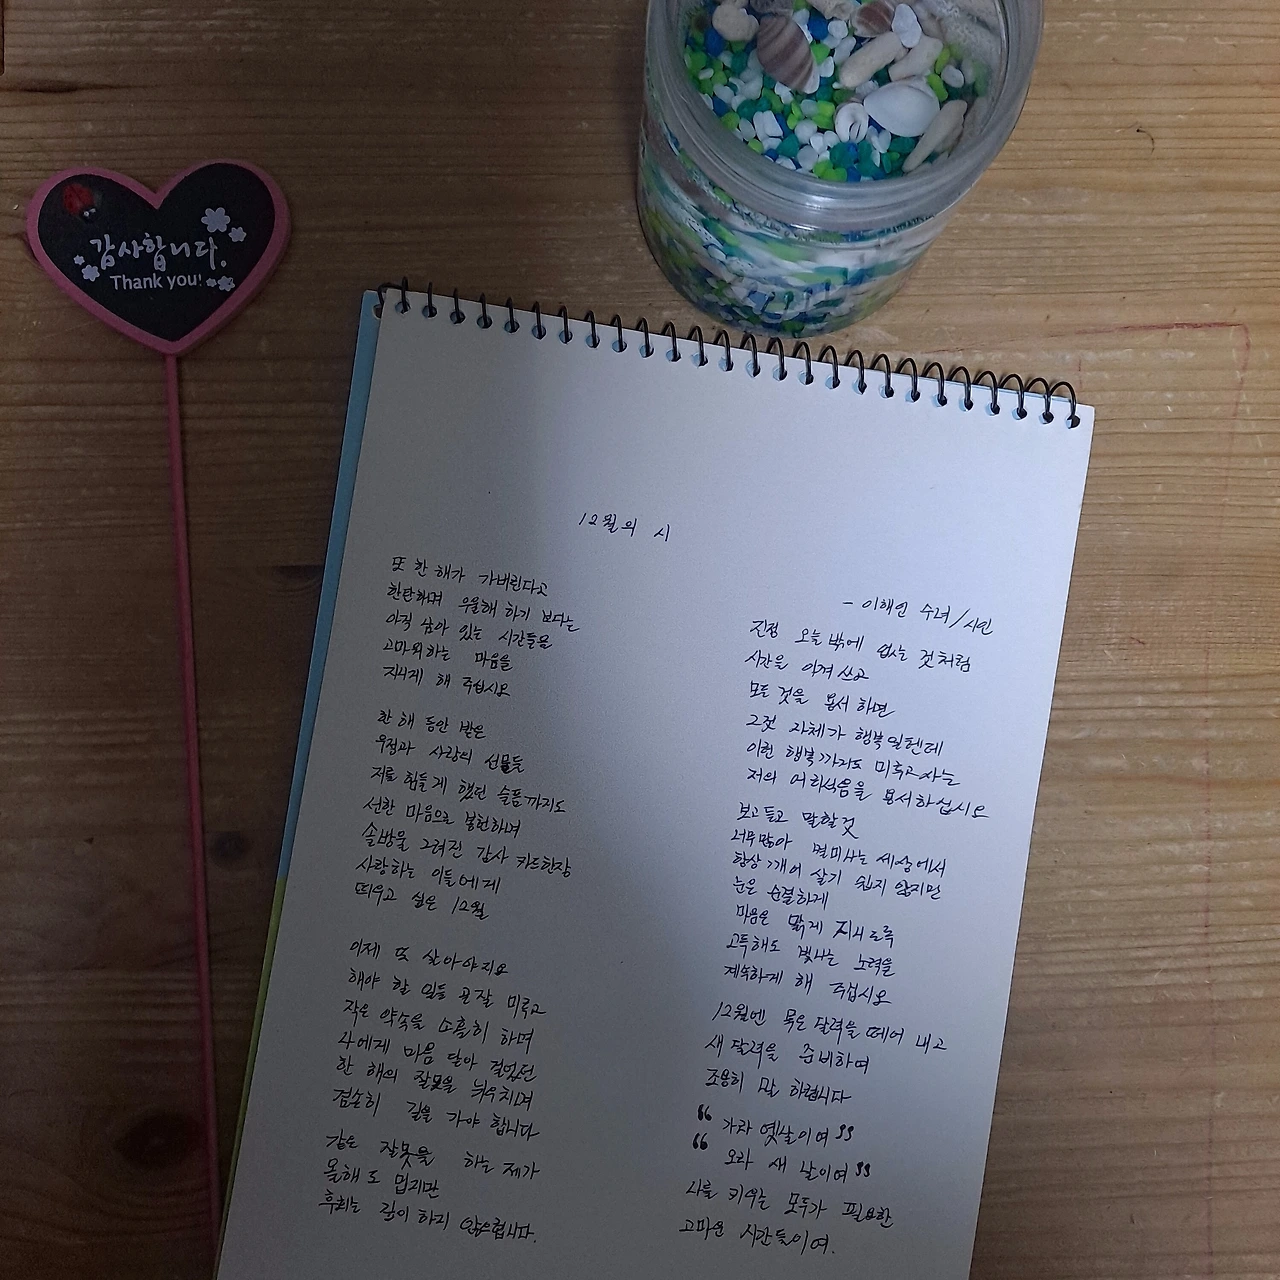 감사합니다.
Thank you!
12월의 시
- 이해인 수녀/시인
또 한 해가 가버린다고
한탄하며 우울해 하기 보다는
아직 남아 있는 시간들을
고마워하는 마음을
지니게 해 주십시오
한 해 동안 받은
우정과 사랑의 선물들
저를 힘들게 했던 슬픔까지도
선한 마음으로 봉헌하며
솔방울 그려진 감사 카드한장
사랑하는 이들에게
띄우고 싶은 12월
이제 또 살아야지요
해야 할 일들 곧잘 미루고
작은 약속을 소홀히 하며
나에게 마음 닫아 걸었던
한 해의 잘못을 뉘우치며
겸손히 길을 가야 합니다
같은 잘못을 하는 제가
올해도 밉지만
후회는 깊이 하지 않으렵니다.
진정 오늘밖에 없는 것처럼
시간을 아껴쓰고
모든 것을 용서하면
그것 자체가 행복일텐데
이런 행복까지도 미루고사는
저의 어리석음을 용서하십시오
보고듣고 말할것
너무많아 멀미나는 세상에서
항상 깨어 살기 쉽지 않지만
눈은 순결하게
마음은 맑게 지니도록
고독해도 빛나는 노력을
계속하게 해 주십시오
12월엔 묵은 달력을 떼어 내고
새 달력을 준비하며
조용히 말 하렵니다
“ 가라 옛날이여 ”
“ 오라 새 날이여 ”
나를 키우는 모두가 필요한
고마운 시간들이여.